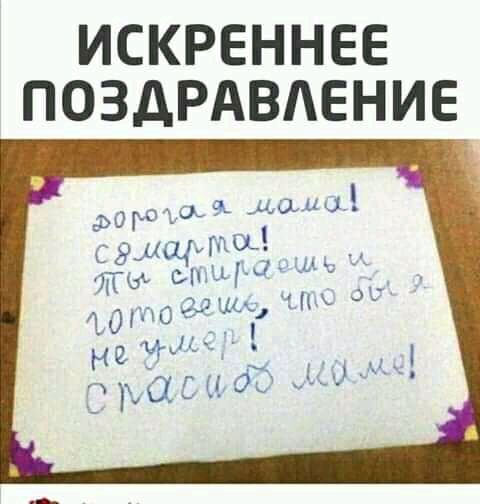 ИСКРЕННЕЕ
ПОЗДРАВЛЕНИЕ
дорогая мама!
с 8 марта!
Ты стираешь и
готовешь, что бы я
не умер!
Спасибо мама!